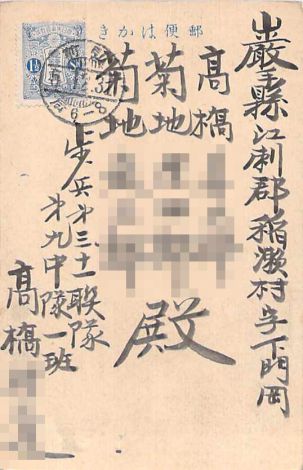 郵便はかき
巌手縣江刺郡稲瀬村字下門岡
髙橋
菊地
菊地
殿
歩兵第三十一联隊
第九中隊一班
髙橋
1½